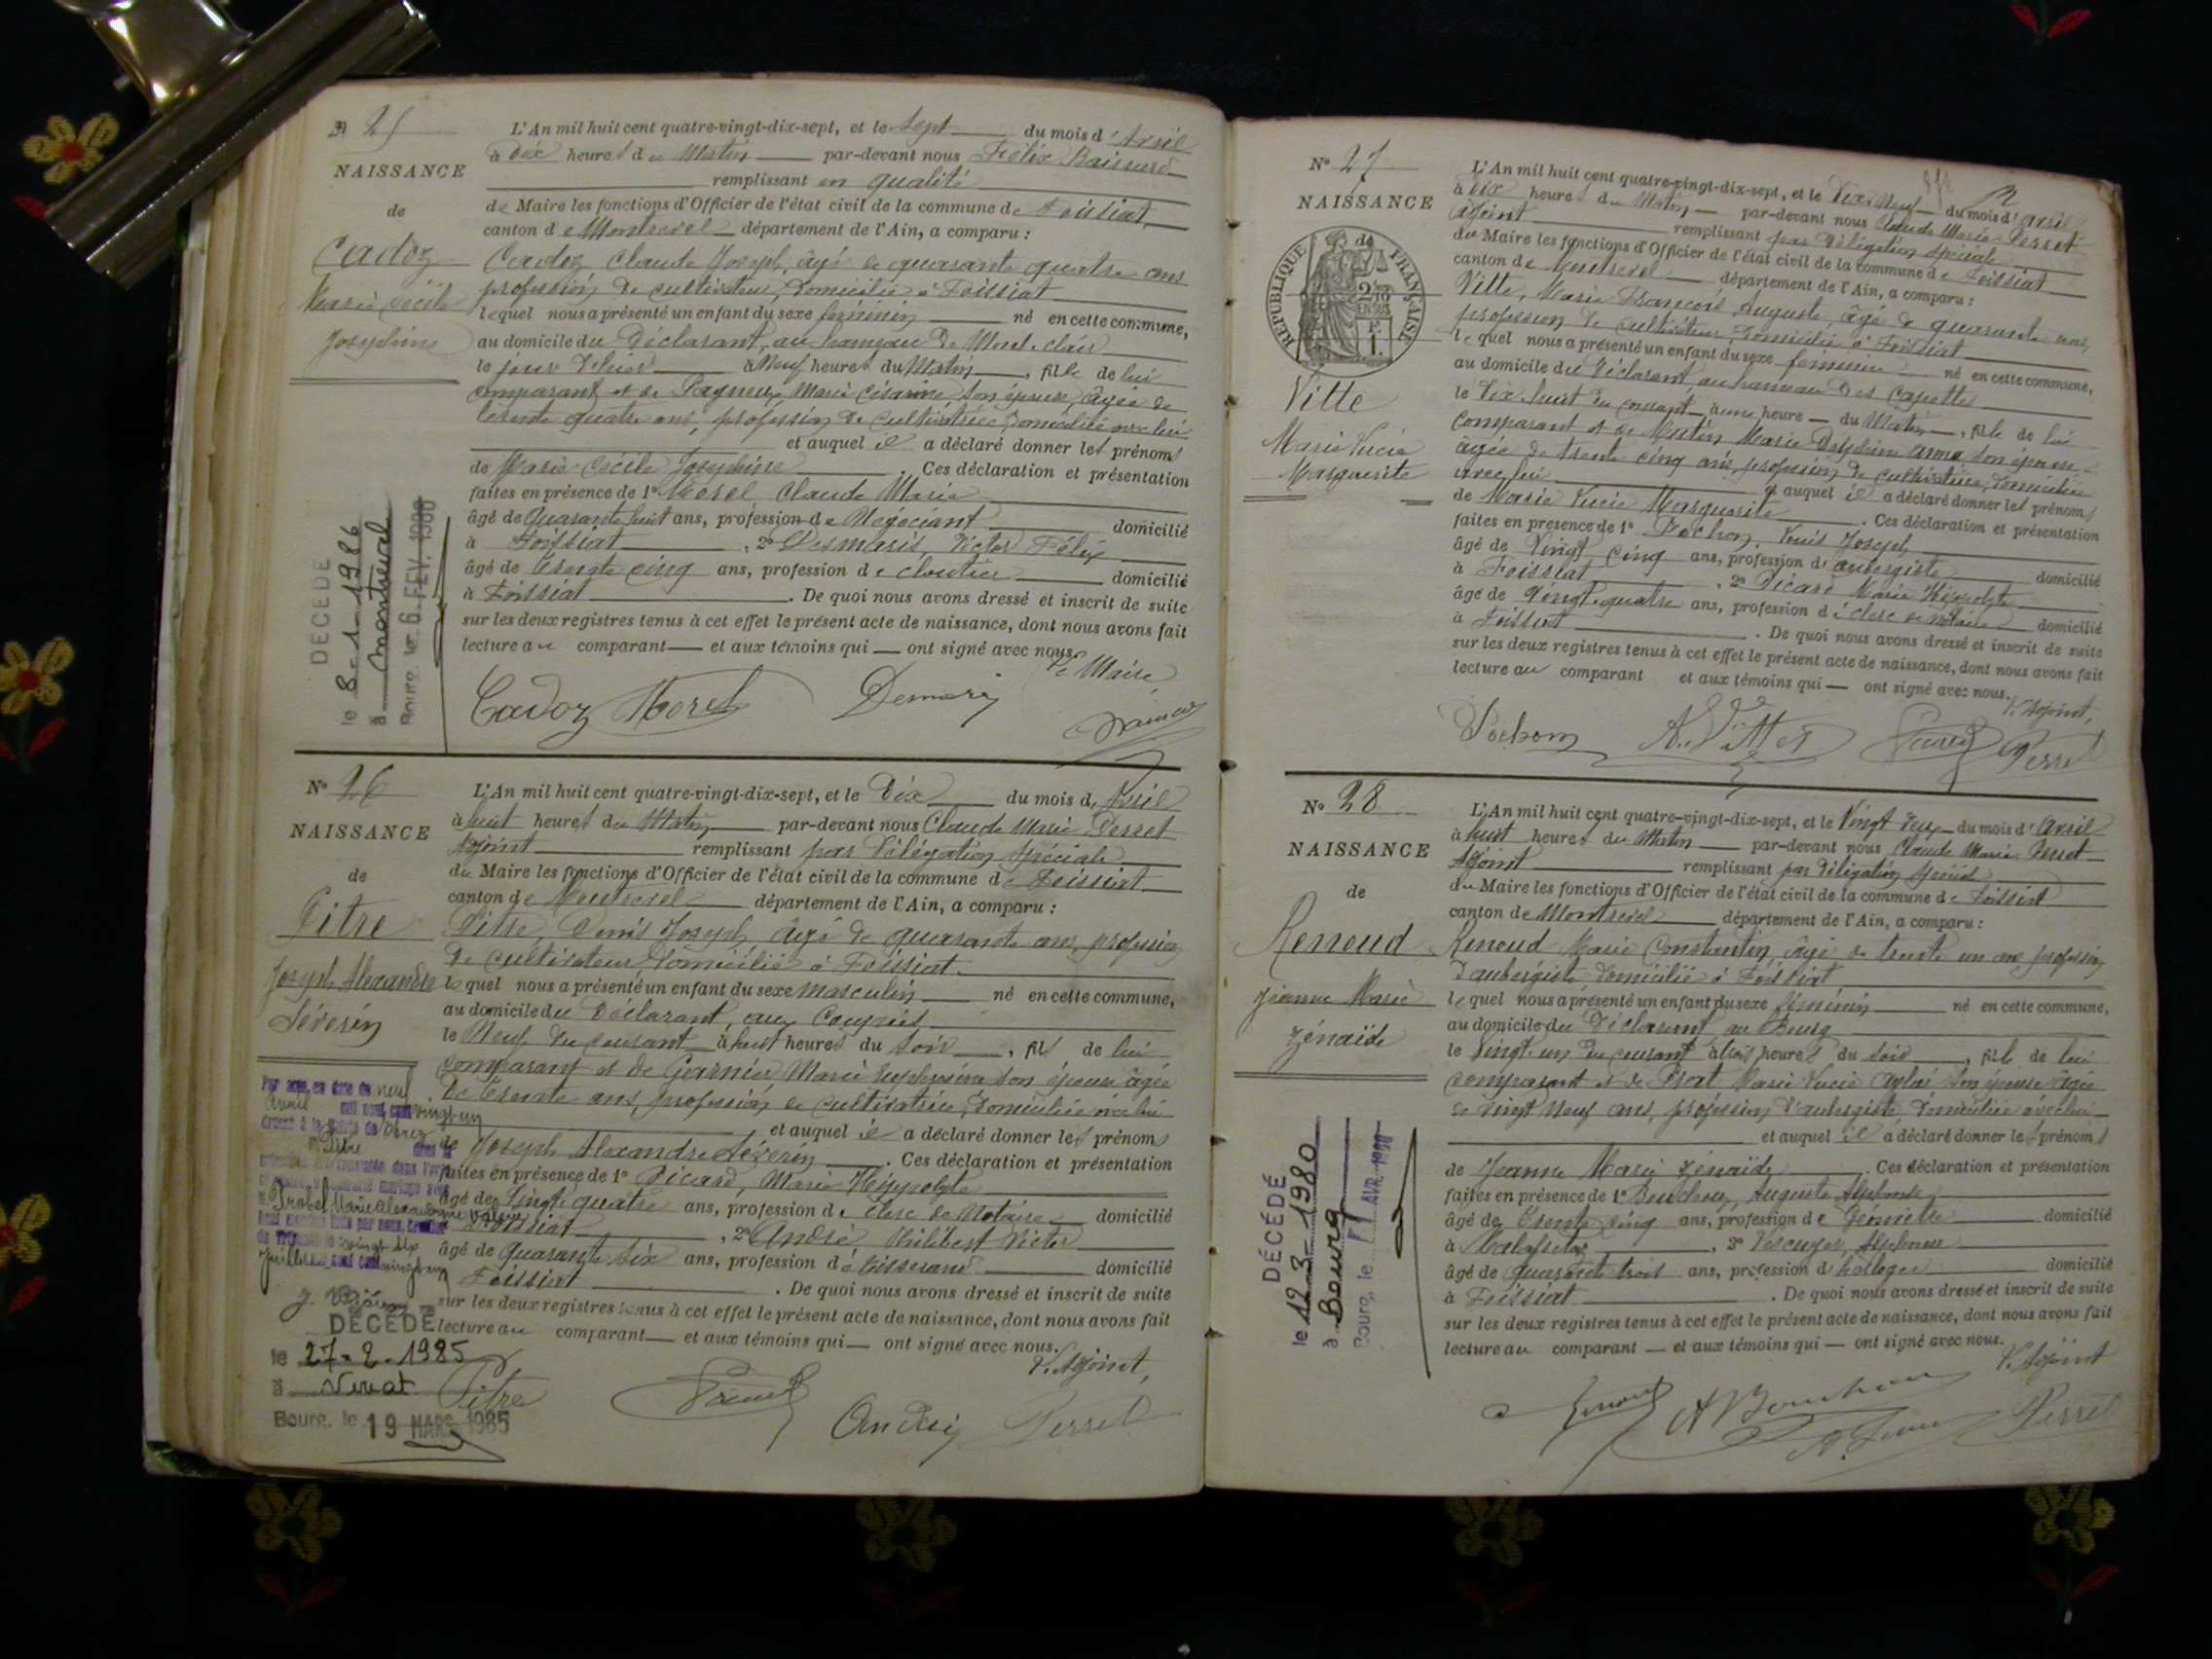 N° 25
NAISSANCE
de
Cadoz
Marie Cécile
Joséphine
L'An mil huit cent quatre-vingt-dix-sept, et le Sept du mois d'Avril
à dix heures du Matin par-devant nous Félix
remplissant en qualité
de Maire les fonctions d'Officier de l'état civil de la commune de Foissiat
canton de Montrevel département de l'Ain, a comparu :
Cadoz Claude Joseph, âgé de quarante quatre ans
profession de cultivateur, domicilié à Foissiat
lequel nous a présenté un enfant du sexe féminin né en cette commune,
au domicile du Déclarant, au hameau de Mont-clair
le jour d'hier à Neuf heures du Matin, fille de lui
comparant et de Pagneux Marie Césarine, son épouse, âgée de
trente quatre ans, profession de cultivatrice domiciliée avec lui
et auquel il a déclaré donner les prénoms
de Marie Cécile Joséphine. Ces déclaration et présentation
faites en présence de 1° Morel Claude Marie
âgé de Quarante huit ans, profession de Négociant domicilié
à Foissiat, 2° Desmaris Victor Félix
âgé de trente cinq ans, profession de cloutier domicilié
à Foissiat. De quoi nous avons dressé et inscrit de suite
sur les deux registres tenus à cet effet le présent acte de naissance, dont nous avons fait
lecture au comparant et aux témoins qui ont signé avec nous.
Le Maire,
Cadoz Morel
DÉCÉDÉ
le 8-1-1986
à Montreval
Bourg, le 6 FEV. 1986
N° 26
NAISSANCE
de
Pitre
Joseph Alexandre
Séverin
L'An mil huit cent quatre-vingt-dix-sept, et le Dix du mois d'Avril
à huit heures du Matin par-devant nous Claude Marie Perret
Adjoint remplissant par Délégation spéciale
du Maire les fonctions d'Officier de l'état civil de la commune de Foissiat
canton de Montrevel département de l'Ain, a comparu :
Pitre Denis Joseph âgé de quarante ans, profession
de cultivateur domicilié à Foissiat
lequel nous a présenté un enfant du sexe masculin né en cette commune,
au domicile du Déclarant, aux
le Neuf du courant à huit heures du soir, fils de lui
comparant et de Garnier Marie Euphrosine son épouse âgée
de trente ans, profession de cultivatrice, domiciliée avec lui
et auquel il a déclaré donner les prénoms
de Joseph Alexandre Séverin. Ces déclaration et présentation
faites en présence de 1° Picard, Marie Hippolyte
âgé de Vingt quatre ans, profession de clerc de Notaire domicilié
à Foissiat, 2° André Philibert Victor
âgé de quarante six ans, profession de tisserand domicilié
à Foissiat. De quoi nous avons dressé et inscrit de suite
sur les deux registres tenus à cet effet le présent acte de naissance, dont nous avons fait
lecture au comparant et aux témoins qui ont signé avec nous.
L'Adjoint,
Pitre Picard Perret
Par acte en date du neuf
avril mil neuf cent vingt un
DÉCÉDÉ
le 27-2-1985
à Viriat
Bourg, le 19 MARS 1985
N° 27
NAISSANCE
de
RÉPUBLIQUE FRANÇAISE
Vitte
Marie Lucie
Marguerite
L'An mil huit cent quatre-vingt-dix-sept, et le Dix Neuf du mois d'avril
à dix heures du Matin par-devant nous Claude Marie Perret
Adjoint remplissant par Délégation spéciale
du Maire les fonctions d'Officier de l'état civil de la commune de Foissiat
canton de Montrevel département de l'Ain, a comparu :
Vitte, Marie François Auguste, âgé de quarante ans,
profession de cultivateur domicilié à Foissiat
lequel nous a présenté un enfant du sexe féminin né en cette commune,
au domicile du Déclarant au hameau des Capettes
le Dix huit du courant à une heure du Matin, fille de lui
comparant et de Marie son épouse
âgée de trente cinq ans, profession de cultivatrice, domiciliée
avec lui et auquel il a déclaré donner les prénoms
de Marie Lucie Marguerite. Ces déclaration et présentation
faites en présence de 1° Pochon, Louis Joseph
âgé de Vingt cinq ans, profession d'aubergiste domicilié
à Foissiat, 2° Picard Marie Hippolyte
âgé de vingt-quatre ans, profession de clerc de notaire domicilié
à Foissiat. De quoi nous avons dressé et inscrit de suite
sur les deux registres tenus à cet effet le présent acte de naissance, dont nous avons fait
lecture au comparant et aux témoins qui ont signé avec nous.
L'Adjoint,
Pochon A. Vitte Picard Perret
N° 28
NAISSANCE
de
Renoud
Jeanne Marie
Zénaïde
L'An mil huit cent quatre-vingt-dix-sept, et le Vingt deux du mois d'Avril
à huit heures du Matin par-devant nous Claude Marie Perret
Adjoint remplissant par Délégation spéciale
du Maire les fonctions d'Officier de l'état civil de la commune de Foissiat
canton de Montrevel département de l'Ain, a comparu :
Renoud Marie Constantin, âgé de trente un ans profession
d'aubergiste domicilié à Foissiat
lequel nous a présenté un enfant du sexe féminin né en cette commune,
au domicile du Déclarant au Bourg
le Vingt un du courant à trois heures du soir, fille de lui
comparant et de Marie Lucie son épouse âgée
de vingt neuf ans, profession d'aubergiste domiciliée avec lui
et auquel il a déclaré donner les prénoms
de Jeanne Marie Zénaïde. Ces déclaration et présentation
faites en présence de 1° Bouchoux, Auguste Alphonse
âgé de trente cinq ans, profession de Géomètre domicilié
à Malafretaz, 2° Alphonse
âgé de quarante trois ans, profession d'horloger domicilié
à Foissiat. De quoi nous avons dressé et inscrit de suite
sur les deux registres tenus à cet effet le présent acte de naissance, dont nous avons fait
lecture au comparant et aux témoins qui ont signé avec nous.
L'Adjoint
Perret
DÉCÉDÉ
le 12-3-1980
à Bourg
Bourg, le AVR. 1980